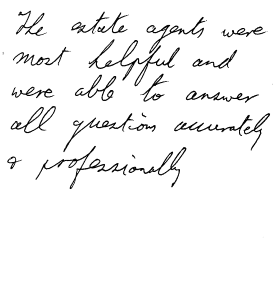 The estate agents were
most helpful and
were able to answer
all questions accurately
& professionally